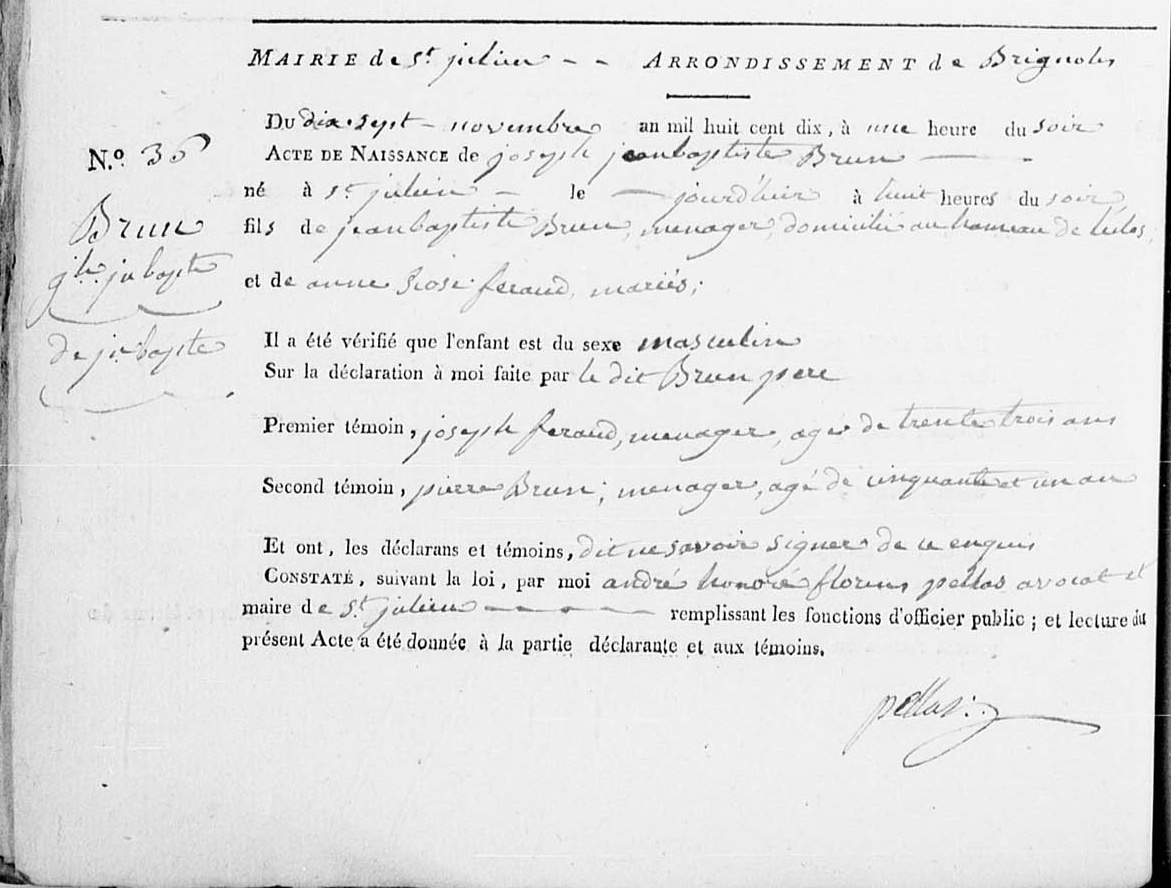 MAIRIE de st julien - - ARRONDISSEMENT de Brignoles
DU dix-sept - novembre an mil huit cent dix, à une heure du soir
N.º 36
ACTE DE NAISSANCE de joseph jeanbaptiste Brun
né à st julien - le - jourd'huir à huit heures du soir,
Brun
fils de jeanbaptiste Brun, menager, domicilié au hameau de
jh. jn bapte
et de anne Rose feraud, mariés;
de jn bapte
Il a été vérifié que l'enfant est du sexe masculin
Sur la déclaration à moi faite par le dit Brun pere
Premier témoin, joseph feraud, menager, agé de trente trois ans
Second témoin, pierre Brun; menager, agé de cinquante et un an
Et ont, les déclarans et témoins, dit ne savoir signer de ce enquis
CONSTATÉ, suivant la loi, par moi andré honoré florens pellas avocat et
maire de st julien - - - remplissant les fonctions d'officier public; et lecture du
présent Acte a été donnée à la partie déclarante et aux témoins.
pellas